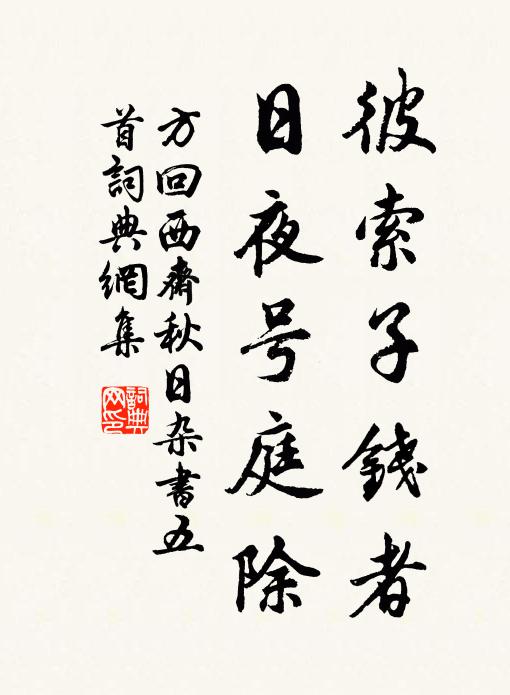 彼索子錢者
日夜号庭除
方回西齋秋日杂書五
首詞典網集
詞典网印